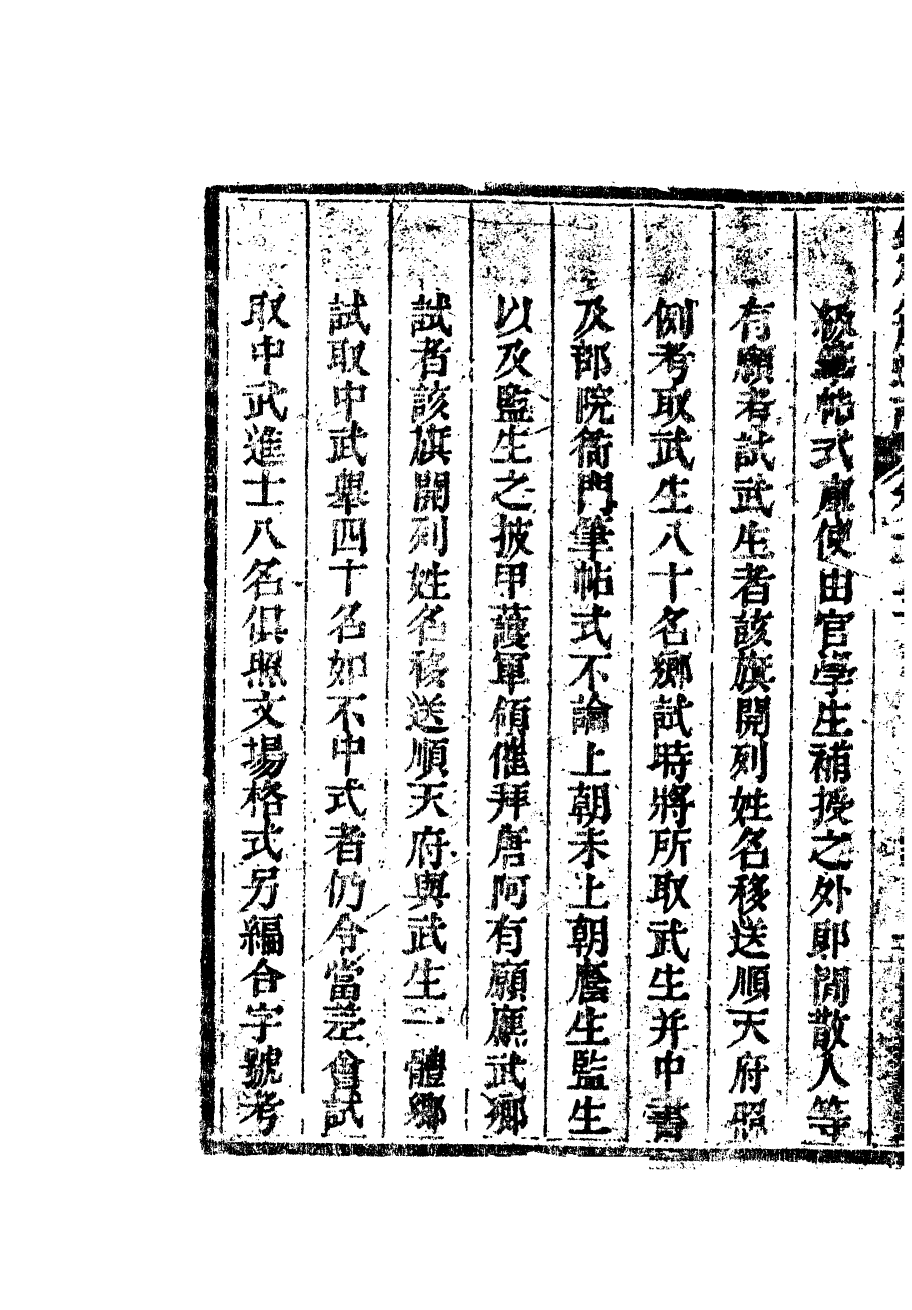 級筆帖式庫使由官學生補授之外郎閒散人等
有願考試武生者該旗開列姓名移送順天府照
例考取武生八十名鄉試時將所取武生并中書
及部院衙門筆帖式不論上朝未上朝廕生監生
以及監生之披甲護軍領催拜唐阿有願應武鄉
試者該旗開列姓名移送順天府與武生一體鄉
試取中武舉四十名如不中式者仍令當差會試
取中武進士八名俱照文場格式另編合字號考